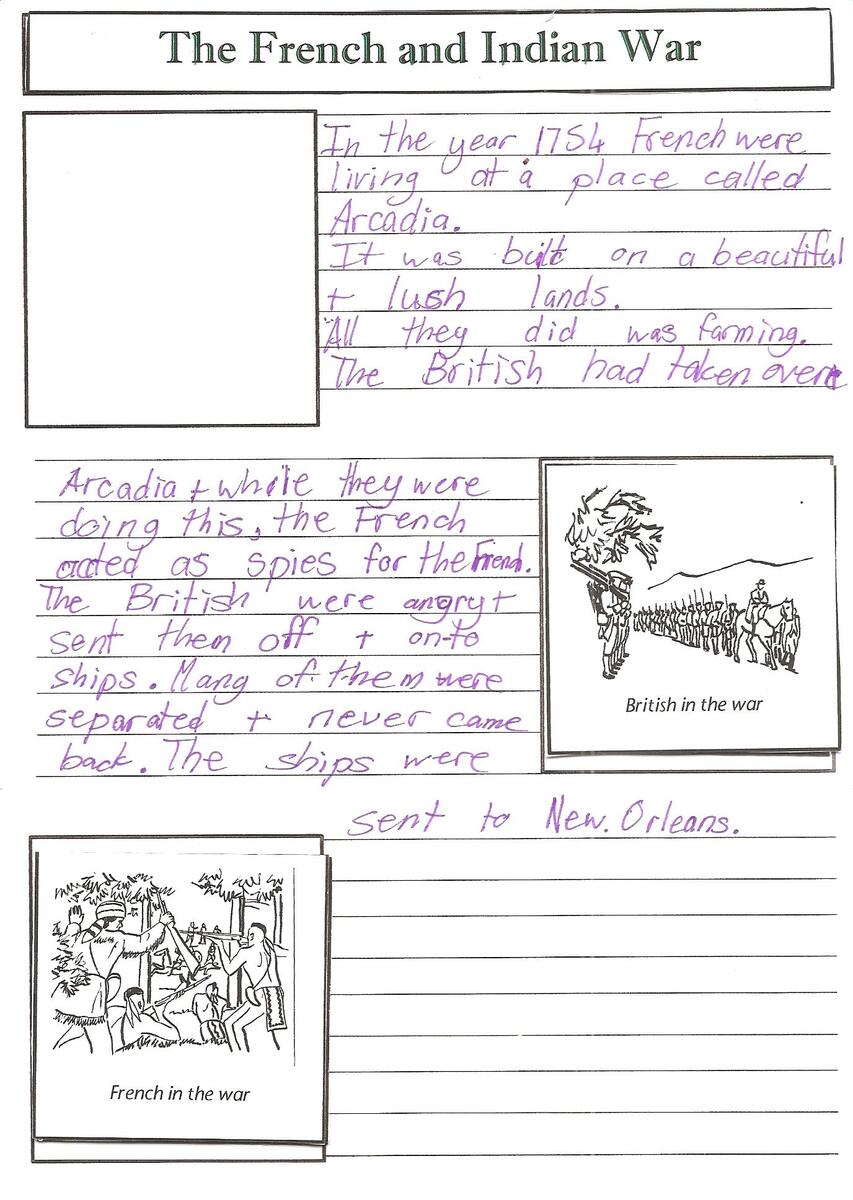 The French and Indian War
In the year 1754 French were
living at a place called
Arcadia.
It was built on a beautiful
+ lush lands.
All they did was farming.
The British had taken over
Arcadia + while they were
doing this, the French
acted as spies for the French.
The British were angry +
sent them off + on-to
ships. Many of them were
separated + never came
back. The ships were
British in the war
sent to New. Orleans.
French in the war